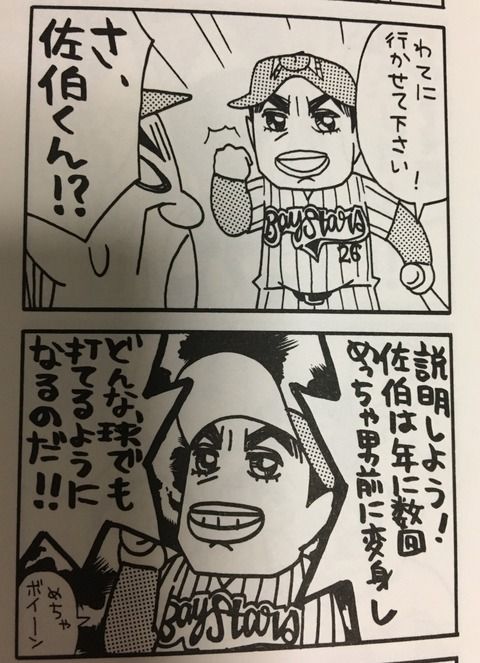 わてに
行かせて下さい!
さ、
佐伯くん!?
BayStars
26
説明しよう!
佐伯は年に数回
めっちゃ男前に変身し
どんな球でも
打てるように
なるのだ!!
めちゃ
ボイーン
BayStars